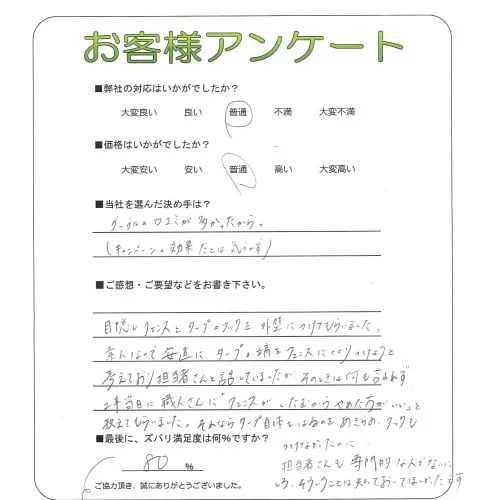 お客様アンケート
■弊社の対応はいかがでしたか？
大変良い 良い 普通 不満 大変不満
■価格はいかがでしたか？
大変安い 安い 普通 高い 大変高い
■当社を選んだ決め手は？
グーグルの口コミが多かったから。
（キャンペーンの効果だとは思うけど）
■ご感想・ご要望などをお書き下さい。
目隠しフェンスとタープのフックを外壁につけてもらいました。
素人なので安直にタープの端をフェンスにくくりつけようと
考えており担当者さんと話していましたがそのときは何も言われず
工事当日に職人さんに「フェンスがいたむからやめた方がいい」と
教えてもらいました。それならタープ自体をはるのをあきらめ、フックも
つけなかったのに…
■最後に、ズバリ満足度は何％ですか？
担当者さんも専門的な人でないに
80 %
しろ、そういうことは知っておいてほしかったです
ご協力頂き、誠にありがとうございました。